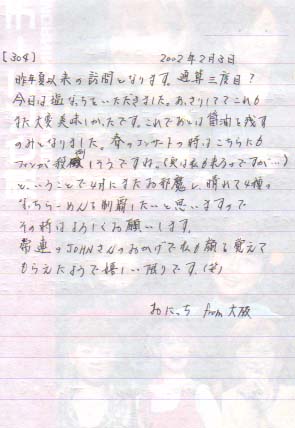 [304] 2002年2月3日
昨年夏以来の訪問となります。通算三度目?
今日は塩なっちをいただきました。あっさりしててこれも
また大変美味しかったです。これであとは醤油を残す
のみとなりました。春のコンサートの時はこちらにも
ファンが殺到しそうですね。(実は私も来るのですが…)
と、いうことで4月にまたお邪魔し、晴れて4種の
なっちらーめんを制覇したいと思いますので
その折はよろしくお願いします。
常連のJOHNさんのおかげで私も顔を覚えて
もらえたようで嬉しい限りです。(笑)
おにっち from 大阪